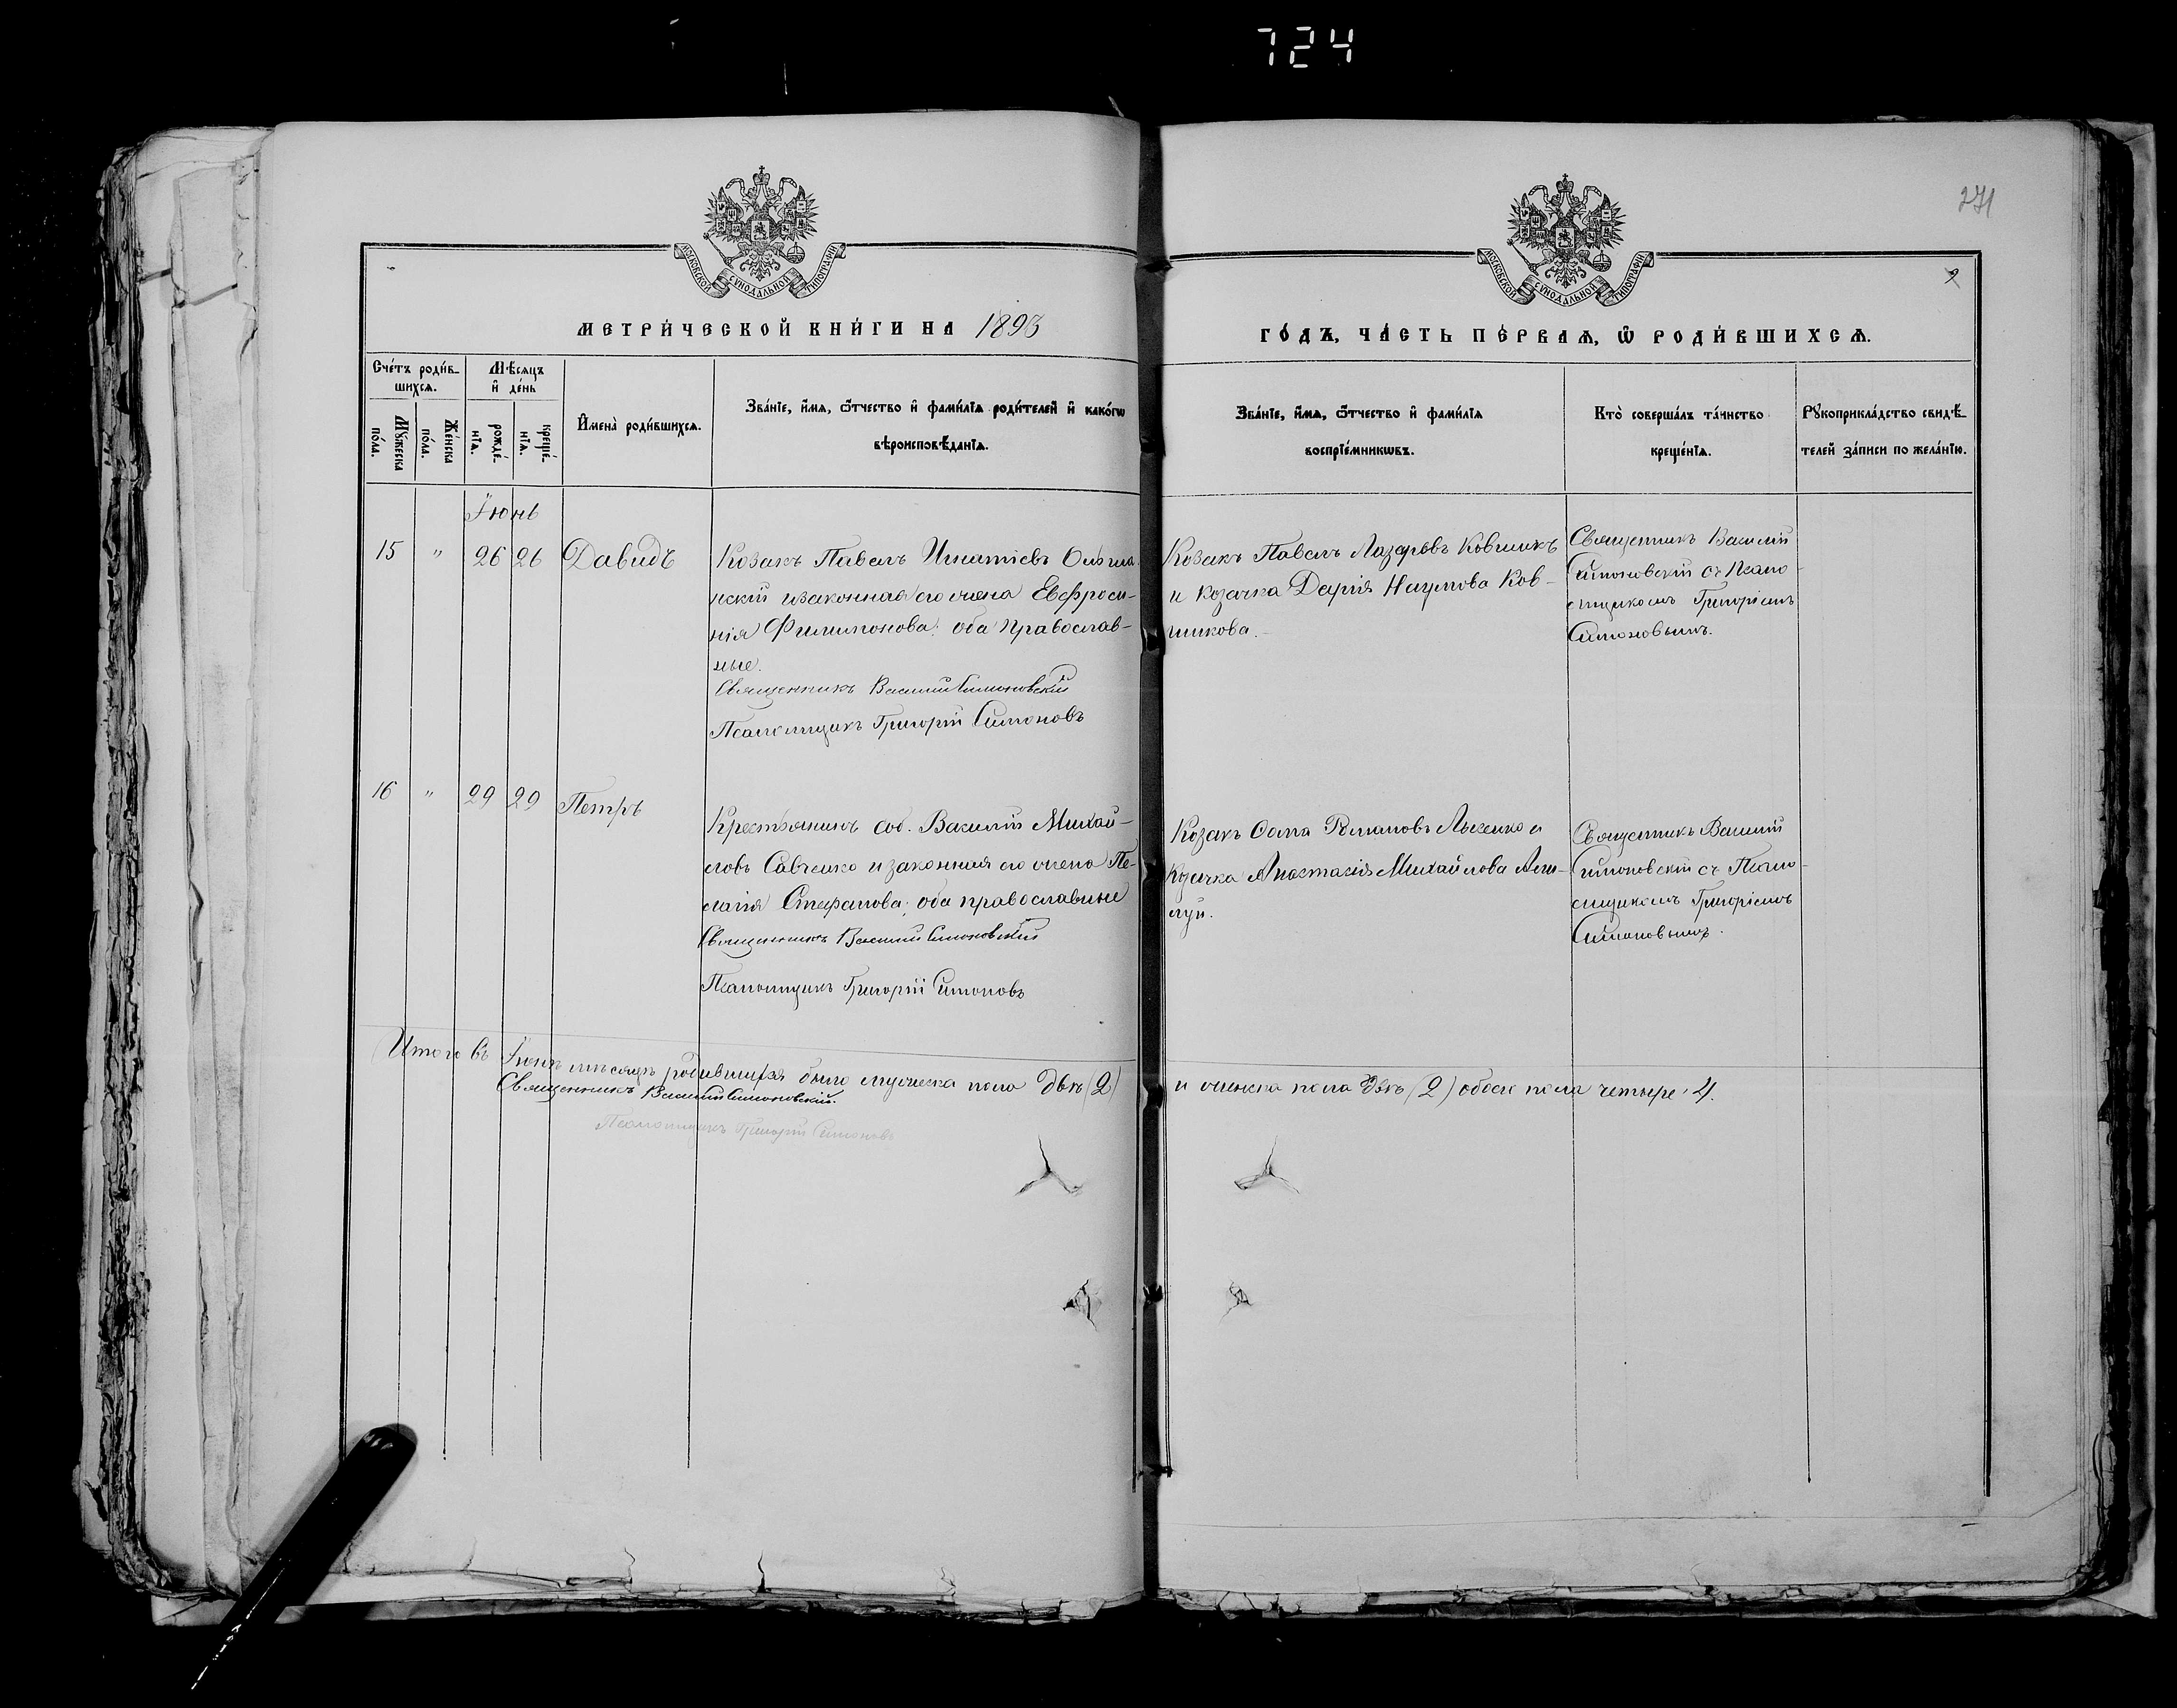 724
271
9
МОСКОВСКОЙ СѴНОДАЛЬНОЙ ТИПОГРАФІИ
МОСКОВСКОЙ СѴНОДАЛЬНОЙ ТИПОГРАФІИ
МЕТРИ́ЧЕСКОЙ КНИ́ГИ НА 1893
ГО́ДЪ, ЧА́СТЬ ПЕ́РВАѦ, Ѡ҆ РОДИ́ВШИХСѦ.
Сче́тъ роди́в-
шихсѧ.
Мꙋ́жеска
по́ла.
Же́нска
по́ла.
Мѣ́сѧцъ
и҆ де́нь
рожде́-
нїѧ.
креще́-
нїѧ.
И҆мена̀ роди́вшихсѧ.
Зва́нїе, и҆́мѧ, ѻ҆́тчество и҆ фами́лїѧ роди́телей и҆ како́гѡ
вѣроисповѣ́данїѧ.
Зва́нїе, и҆́мѧ, ѻ҆́тчество и҆ фами́лїѧ
воспрїе́мникѡвъ.
Кто̀ соверша́лъ та́инство
креще́нїѧ.
Рꙋкоприкла́дство свидѣ́-
телей за́писи по жела́нїю.
Іюнь
15 " 26 26 Давидъ
Козакъ Павелъ Игнатіевъ
нскій и законная его жена Евфроси-
нія Филимонова; оба православ-
ные.
Священникъ Василій Симоновскій
Псаломщикъ Григорій Симоновъ
Козакъ Павелъ Лазаревъ Ковшикъ
и козачка Дарія Наумова Ков-
шикова.
Священникъ Василій
Симоновскій съ Псало-
мщикомъ Григоріемъ
Симоновымъ.
16 " 29 29 Петръ
Крестьянинъ соб. Василій Михай-
ловъ Савченко и законная его жена Пе-
лагія Стефанова; оба православные
Священникъ Василій Симоновскій
Псаломщикъ Григорій Симоновъ
Козакъ Романовъ и
Козачка Анастасія Михайлова
Священникъ Василій
Симоновскій съ Псало-
мщикомъ Григоріемъ
Симоновымъ.
Итого въ Іюнѣ мѣсяцѣ родившихся было мужеска пола двѣ (2)
и женска пола двѣ (2) обоего пола четыре 4.
Священникъ Василій Симоновскій.
Псаломщикъ Григорій Симоновъ